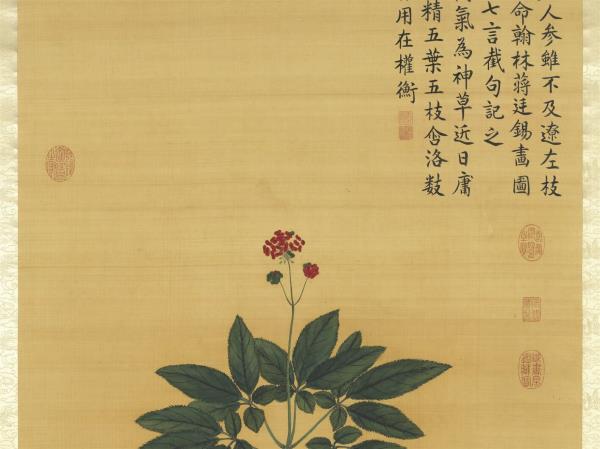 人參雖不及遼左枝
命翰林蔣廷錫畫圖
七言截句記之
氣為神草近日庸
精五葉五枝含洛數
用在權衡